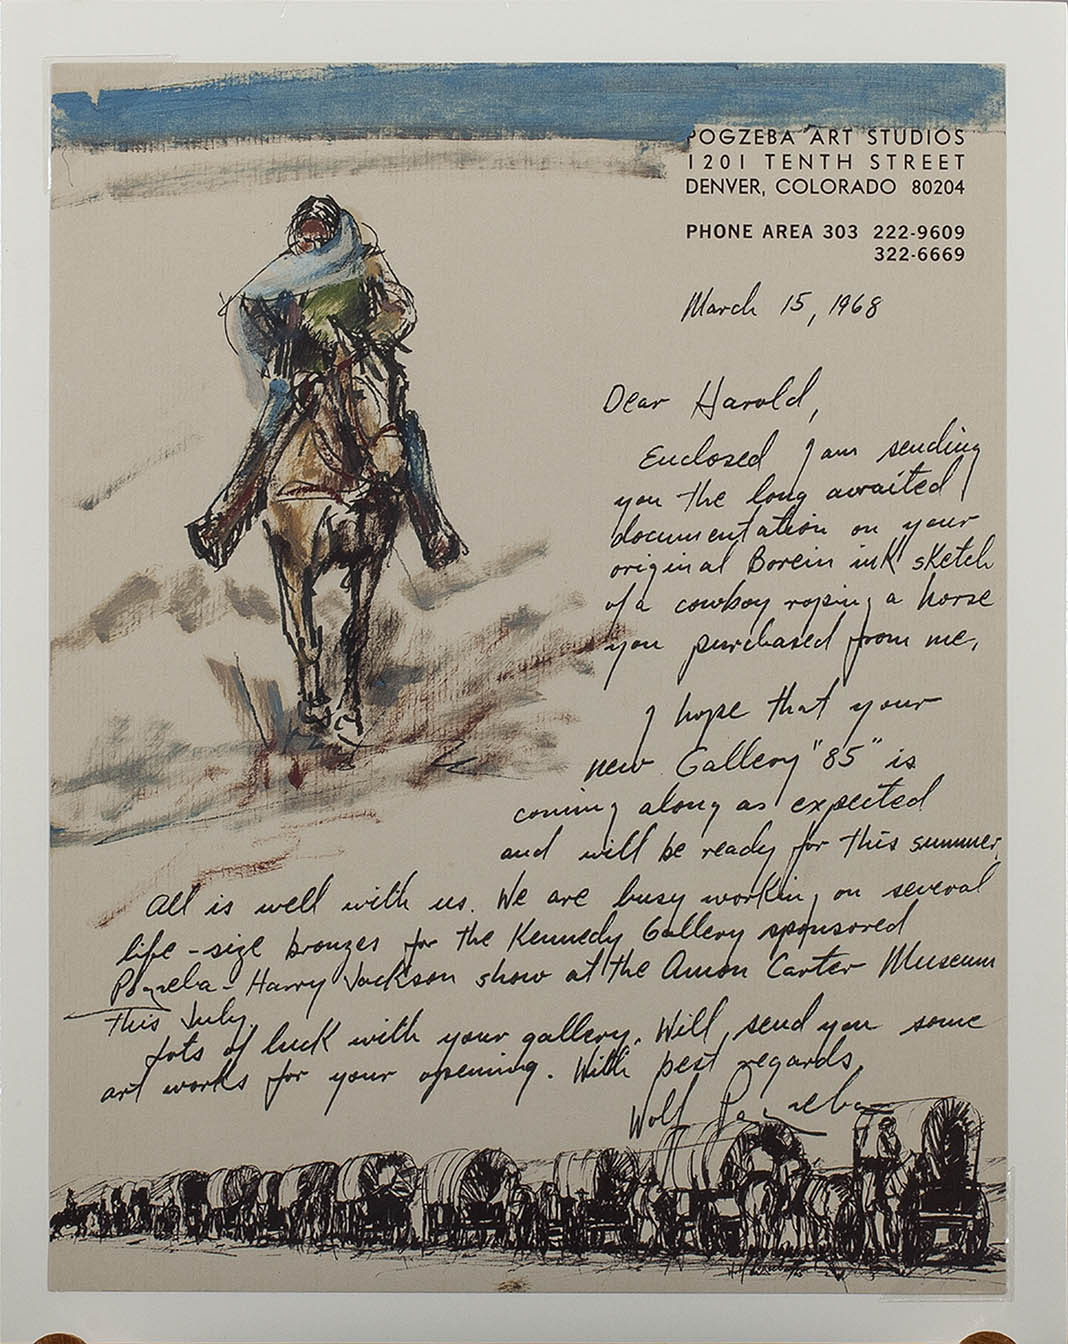 POGZEBA ART STUDIOS
1201 TENTH STREET
DENVER, COLORADO 80204
PHONE AREA 303 222-9609
322-6669
March 15, 1968
Dear Harold,
Enclosed I am sending
you the long awaited
documentation on your
original Borein ink sketch
of a cowboy roping a horse
you purchased from me.
I hope that your
new Gallery "85" is
coming along as expected
and will be ready for this summer.
All is well with us. We are busy working on several
life-size bronzes for the Kennedy Gallery sponsored
Pogzeba-Harry Jackson show at the Amon Carter Museum
this July.
Lots of luck with your gallery. Will send you some
art works for your opening. With best regards,
Wolf Pogzeba